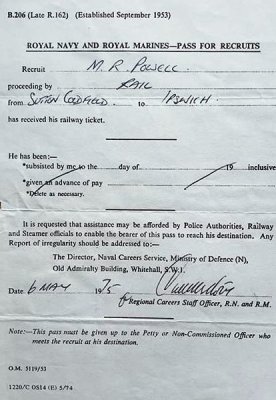 B.206 (Late R.162) (Established September 1953)
ROYAL NAVY AND ROYAL MARINES—PASS FOR RECRUITS
Recruit M. R. POWELL
proceeding by RAIL
from SUTTON COLDFIELD to IPSWICH
has received his railway ticket.
He has been:—
*subsisted by me to the day of 19 inclusive
*given an advance of pay
*Delete as necessary.
It is requested that assistance may be afforded by Police Authorities, Railway
and Steamer officials to enable the bearer of this pass to reach his destination. Any
Report of irregularity should be addressed to:—
The Director, Naval Careers Service, Ministry of Defence (N),
Old Admiralty Building, Whitehall, S.W.1.
Date 6 MAY 1975
for Regional Careers Staff Officer, R.N. and R.M.
Note:—This pass must be given up to the Petty or Non-Commissioned Officer who
meets the recruit at his destination.
O.M. 5119/53
1220/C OS14 (E) 5/74